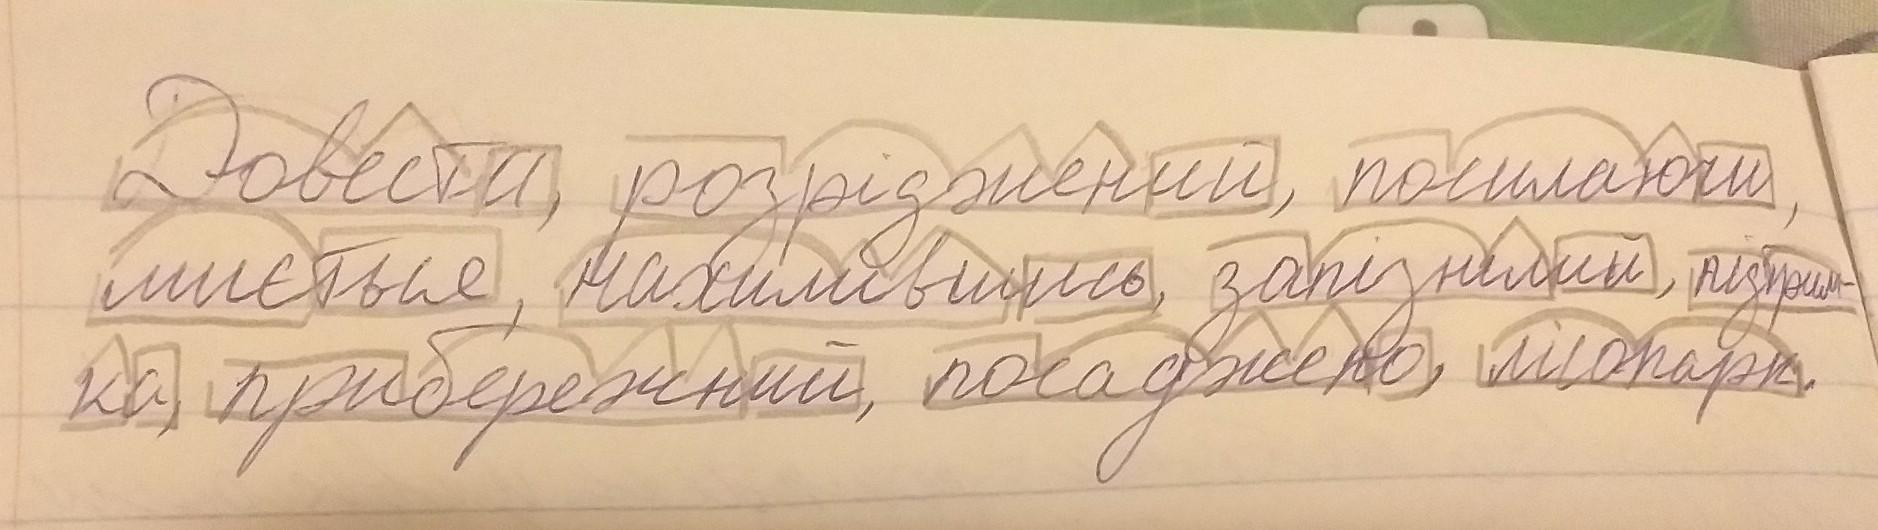 Довести, розріджений, посилаючи,
миється, нахилившись, запізнілий, підтрим-
ка, прибережний, посаджено, лісопарк.